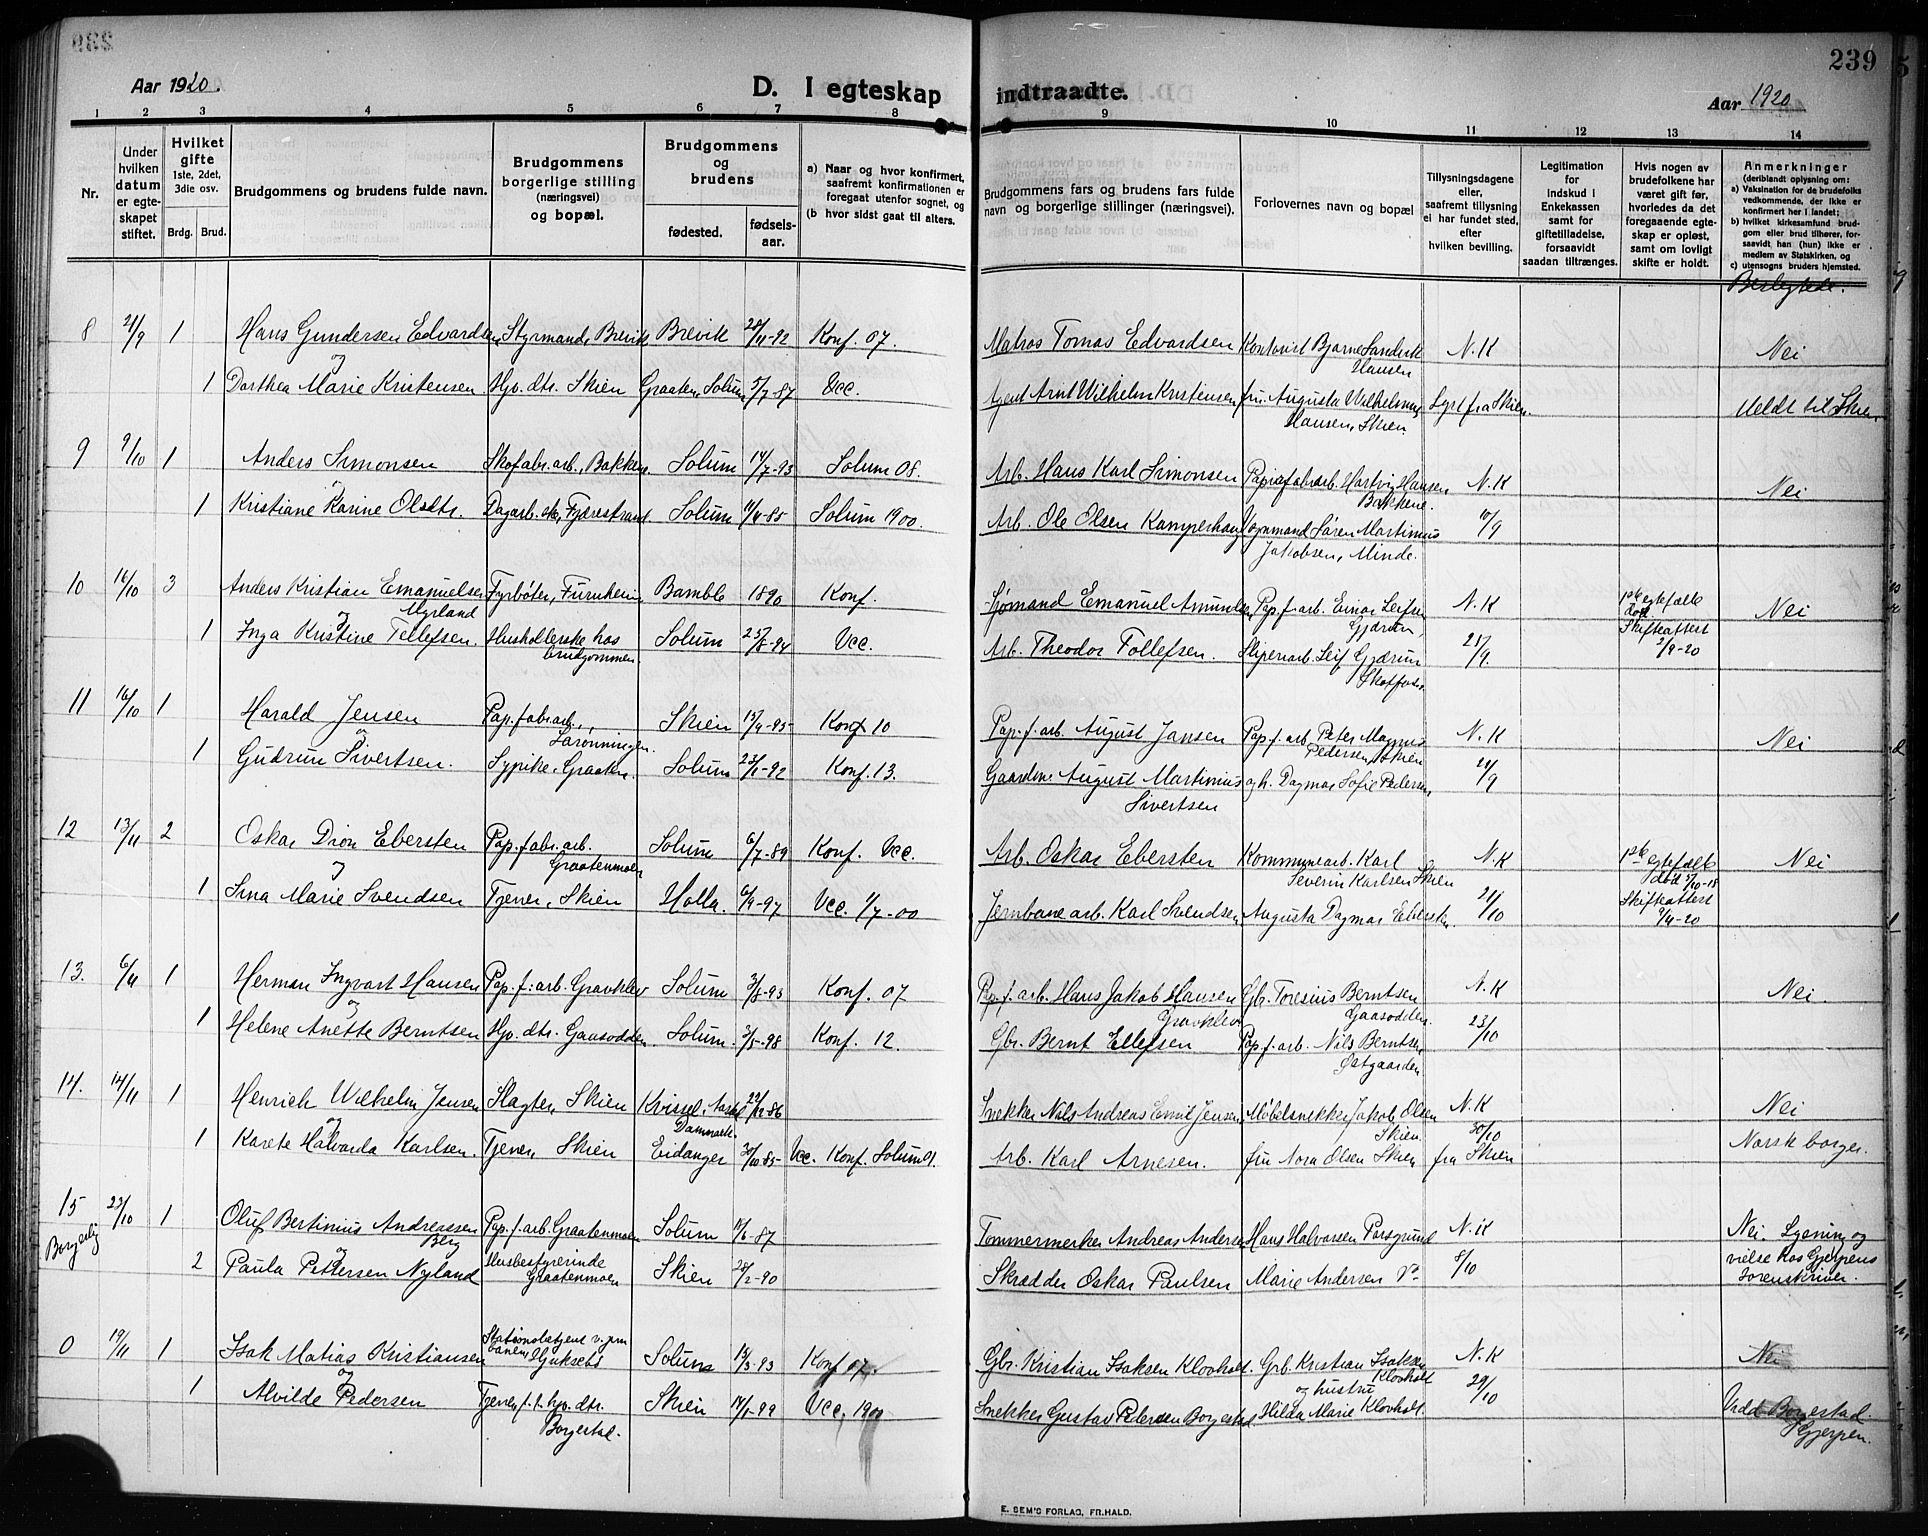 239
Aar 1920.
D. I egteskap indtraadte.
Aar 1920
1 2 3 4 5 6 7 8 9 10 11 12 13 14
Nr.
Under hvilken datum er egteskapet stiftet.
Hvilket gifte 1ste, 2det, 3die osv.
Brdg. Brud.
Brudgommens og brudens fulde navn.
Brudgommens borgerlige stilling (næringsvei) og bopæl.
Brudgommens og brudens
fødested. fødselsaar.
a) Naar og hvor konfirmert, saafremt konfirmationen er foregaat utenfor sognet, og
(b hvor sidst gaat til alters.
Brudgommens fars og brudens fars fulde navn og borgerlige stillinger (næringsvei).
Forlovernes navn og bopæl
Tillysningsdagene eller, saafremt tillysning ei har fundet sted, efter hvilken bevilling.
Legitimation for indskud i Enkekassen samt for giftetilladelse, forsaavidt saadan tiltrænges.
Hvis nogen av brudefolkene har været gift før, hvorledes da det foregaaende egteskap er opløst, samt om lovligt skifte er holdt.
Anmerkninger (deriblandt oplysning om:
a) Vaksination for de brudefolks vedkommende, der ikke er konfirmert her i landet;
b) hvilket kirkesamfund brudgom eller brud tilhører, forsaavidt han (hun) ikke er medlem av Statskirken, og
c) utensogns bruders hjemsted.
Beslegtede.
8 21/9 1 Hans Gundersen Edvardsen Styrmand, Brevik Brevik 28/11-92 Konf. 07. Matros Tomas Edvardsen Kontorist Bjarne Sanderk Hansen N.K Nei
og
1 Dorthea Marie Kristensen Hjv. dtr. Skien Graaten Solum 5/7-87 Vcc. Agent Arnt Wilhelm Kristensen fru Augusta Wilhelmine Hansen, Skien. Lyst fra Skien Meldt til Skien
9 9/10 1 Anders Simonsen Skofabr.arb., Bakken Solum 14/7-93 Solum 08. Arb. Hans Karl Simonsen Papirfabarb. Hartvig Hansen Bakkene. N.K Nei
og
1 Kristiane Karine Olsdtr. Dagarb.ske, Fjærestrand Solum 11/4-85 Solum 1900. Arb. Ole Olsen Kamperhaug Vognmand Søren Martinius Jakobsen, Minde. 10/9
10 16/10 3 Anders Kristian Emanuelsen Myrland Fyrbøter, Furuheim Bamble 1890 Konf. Sjømand Emanuel Amundsen Pap.f.arb. Einar Leifsen Gjærum, N.K 1ste egtefælle død Skifteattest 2/9-20 Nei
og
1 Inga Kristine Tellefsen. Husholderske hos brudgommen. Solum 25/8-94 Vcc. Arb. Theodor Tollefsen. Sliperiarb. Leif Gjærum Skotfoss. 21/9.
11 16/10 1 Harald Jensen Pap.fabr.arb., Sarønningen. Skien 15/9-95 Konf 10 Pap.f.arb. August Jansen Pap.f.arb. Peter Magnus Pedersen, Skien N.K Nei
og
1 Gudrun Sivertsen. Sypike, Graaten. Solum 23/1-92 Konf. 13. Gaardbr. August Martinius Sivertsen og h. Dagmar Sofie Pedersen 21/9
12 13/11 2 Oskar Dion Ebersten Pap.fabr.arb. Graatenmoen Solum 6/7-89 Konf. Vcc. Arb. Oskar Ebersten Kommunearb. Karl Severin Karlsen Skien N.K 1ste egtefælle død 5/10-18 Skifteattest 9/4-20 Nei
og
1 Sina Marie Svendsen Tjener, Skien Holla. 6/9-97 Vcc. 1/7-00 Jernbanearb. Karl Svendsen Augusta Dagmar Ebersten. 21/10
13. 6/11 1 Herman Ingvart Hansen Pap.f.arb. Gravklev Solum 3/8-93 Konf. 07 Pap.f.arb. Hans Jakob Hansen Gravklev Gbr. Toresius Berntsen Gaasodden. N.K Nei.
og
1 Helene Anette Berntsen Hjv. dtr. Gaasodden Solum. 3/5-98 Konf. 12. Gbr. Bernt Ellefsen Pap.f.arb. Nils Berntsen Østgaarden 23/10
14. 14/11 1 Henrich Wilhelm Jensen Slagter, Skien Kvissel, Danmark. 22/12-86 Snekker Nils Andreas Emil Jensen, Møbelsnekker Jakob Olsen Skien. N.K Nei
og
1 Karete Halvarda Karlsen. Tjener, Skien Eidanger 30/10-85 Vcc. Konf. Solum 01. Arb. Karl Arnesen. fru Nora Olsen Skien 30/10 fra Skien Norsk borger.
15 Borgerlig 23/10 1 Oluf Bertinius Andreassen Berg Pap.f.arb. Graatenmoen Solum 11/6-87 Tømmermerker Andreas Andersen Hans Halvorsen Porsgrund N.K Nei. Lysning og vielse hos Gjerpens Sorenskriver.
og
2 Paula Pettersen Nyland Husbestyrerinde Graatenmoen Skien 28/2-90 Skrædder Oskar Paulsen Marie Andersen Do 8/10
0 19/11 1 Isak Matias Kristiansen Stationsbetjent v. jernbanen Hjuksebø Solum 13/3-93 Konf 07. Gbr. Kristian Isaksen Klovholt. Grb. Kristian Isaksen Klovholt N.K Nei
og
1 Alvilde Pedersen Tjener, f.t. hjv. dtr. Borgestad. Skien 14/1-99 Vcc, 1900 Snekker Gustav Petersen Borgestad. og hustru Hilda Marie Klovholt. 29/10 Viet Borgestad. Gjerpen.
E. SEM'S FORLAG, FR.HALD.